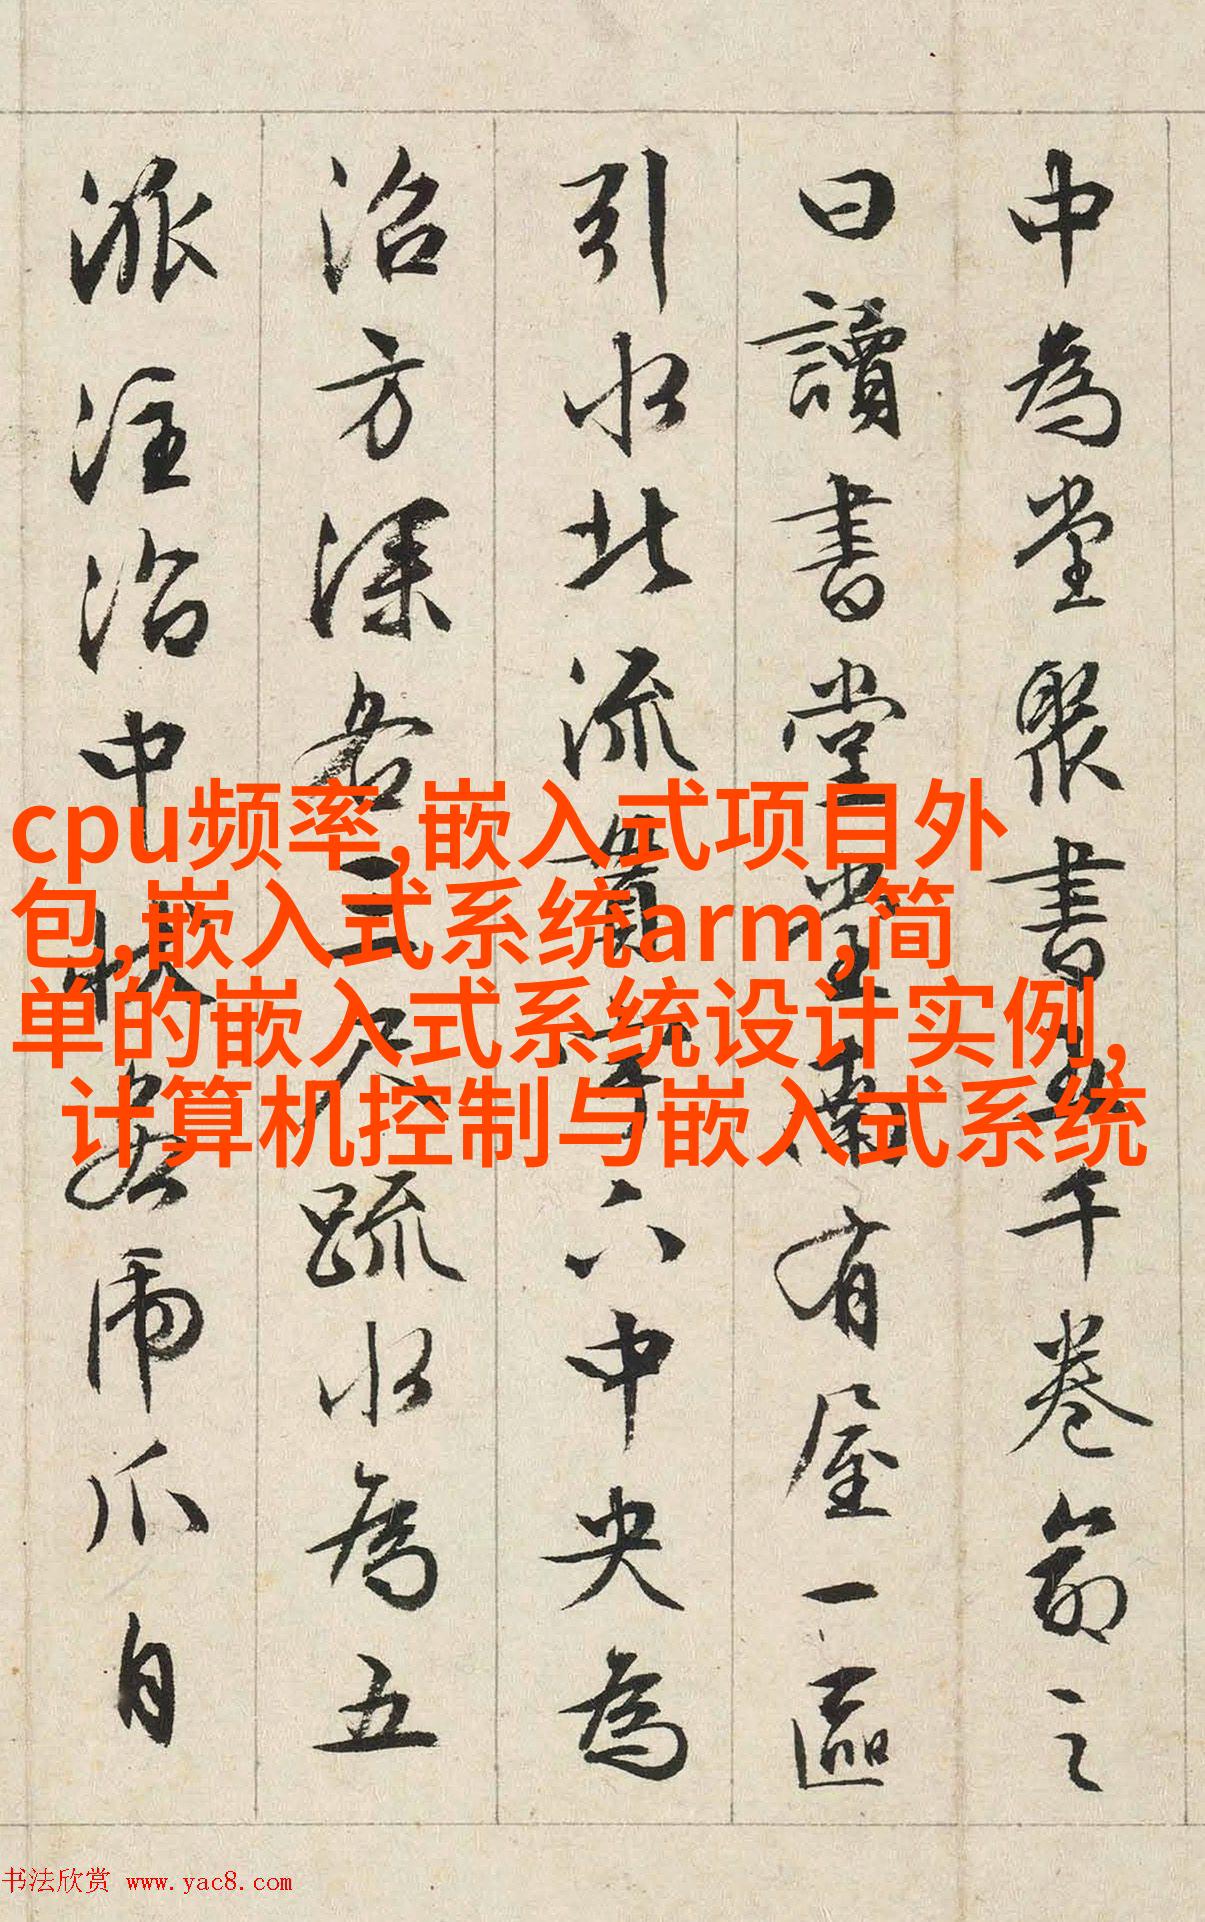 中為堂聚書五千卷命之
曰讀書堂堂南有屋一區
引水北流貫宇下中央為
沼方深各三尺疏水為五
派注沼中狀若虎爪自
cpu频率,嵌入式项目外
包,嵌入式系统arm,简
单的嵌入式系统设计实例,
计算机控制与嵌入式系统
书法欣赏 www.yac8.com